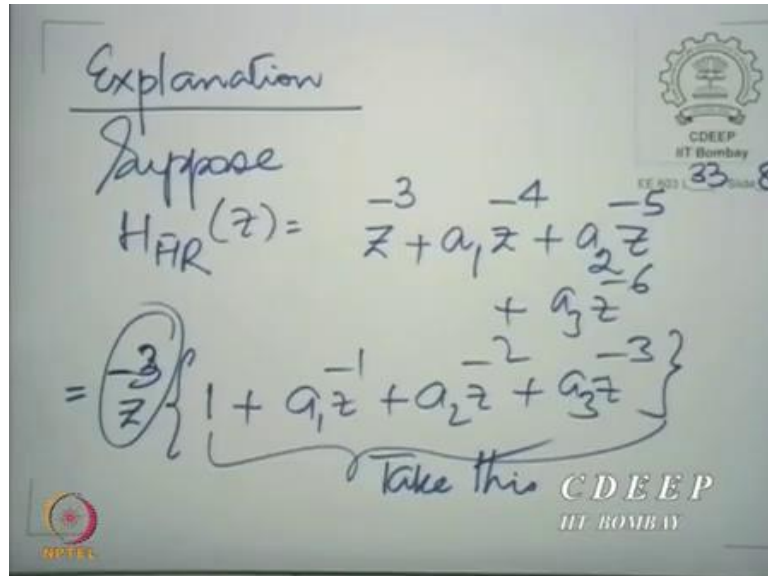 Explanation
Suppose
H_FIR(z) = z^-3 + a_1 z^-4 + a_2 z^-5
+ a_3 z^-6
= z^-3 { 1 + a_1 z^-1 + a_2 z^-2 + a_3 z^-3 }
Take this
CDEEP
IIT Bombay
EE 603 L 33 Slide 8
CDEEP
IIT BOMBAY
NPTEL